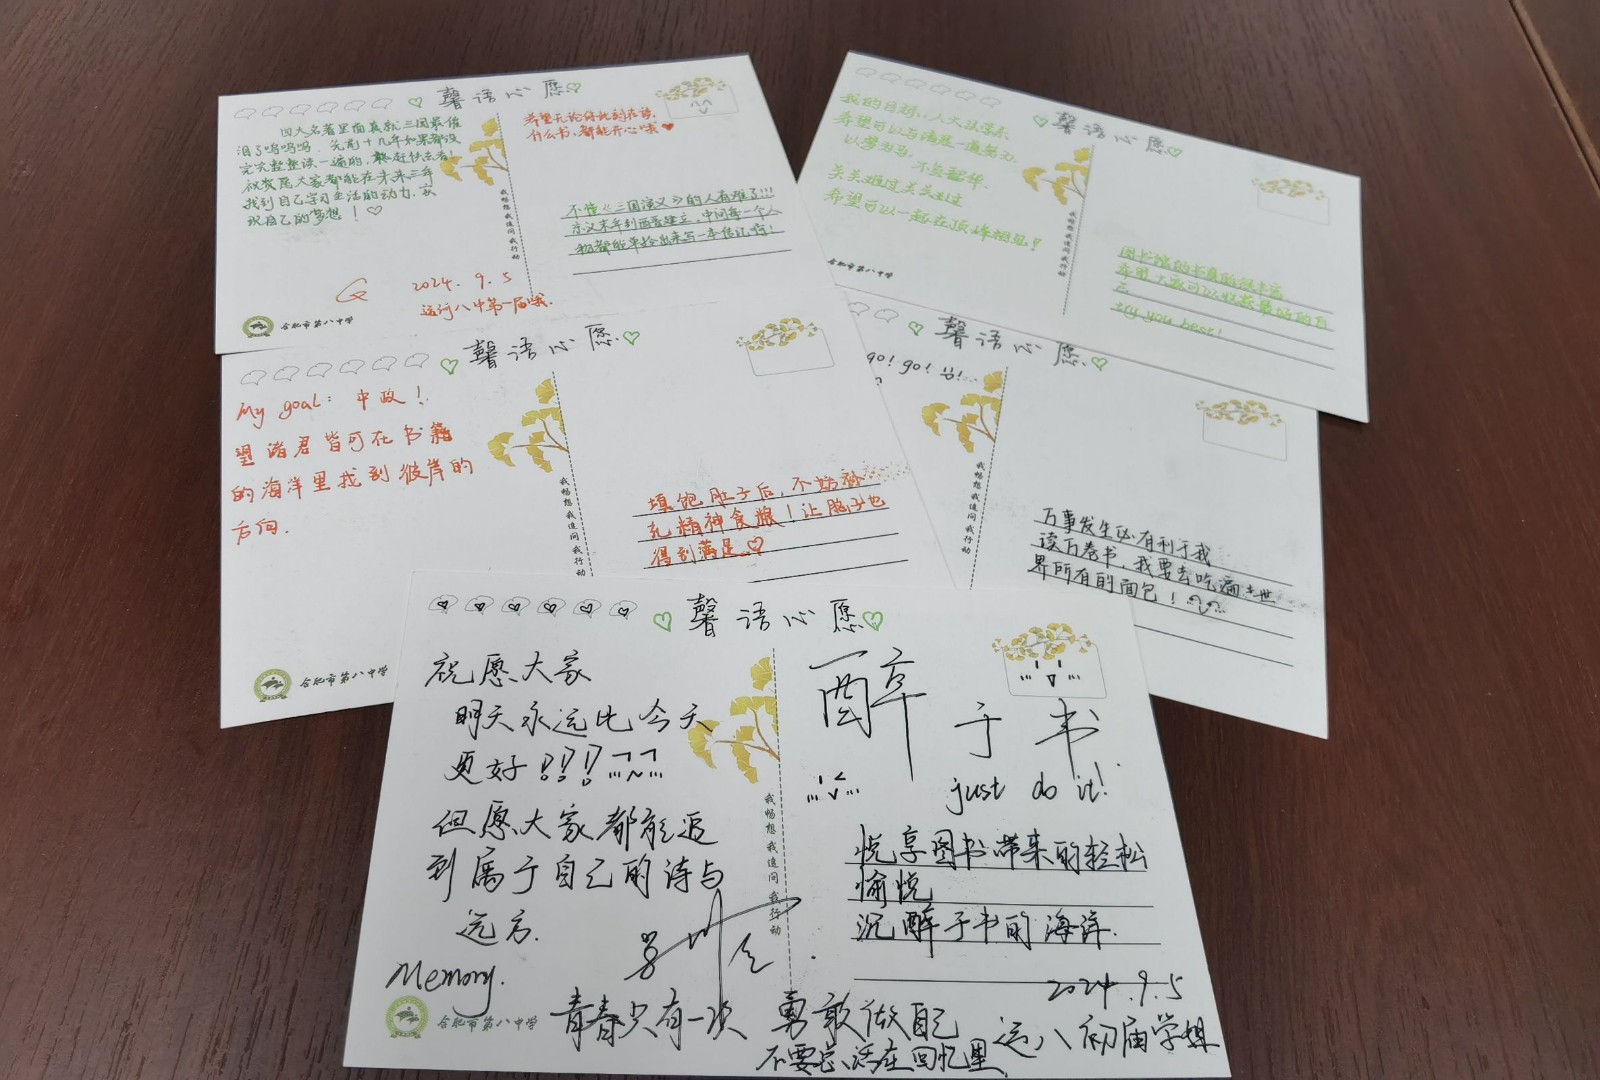 馨语心愿
四大名著里面真就三国最催
泪了呜呜呜，先前十几年如果都没
完完整整读一遍的，赶快去看！
祝贺愿大家都能在未来三年
找到自己学习生活的动力，实
现自己的梦想！♡
2024.9.5
运河八中第一届哦.
合肥市第八中学
希望无论何此刻在读
什么书，都能开心哦♥
我畅想 我追问 我行动
不懂《三国演义》的人有难了!!!
东汉末年到西晋建立，中间每一个人
物都能单拎出来写一本传记啊！
馨语心愿
我的目标，人大
希望可以与
以梦为马，不负韶华.
关关难过关关过
希望可以一起在顶峰相见！
合肥市第八中学
我畅想 我追问 我行动
图书馆的书真的很丰富
try you best!
馨语心愿
My goal: 中政！
望诸君皆可在书籍
的海洋里找到彼岸的
方向.
合肥市第八中学
我畅想 我追问 我行动
填饱肚子后，不妨补
充精神食粮！让脑子也
得到满足♡
馨语心愿
go! go!
我畅想 我追问 我行动
万事发生必有利于我
读万卷书，我要去吃遍世
界所有的面包！
馨语心愿
祝愿大家
明天永远比今天
更好!!!
但愿大家都能追
到属于自己的诗与
远方.
Memory.
合肥市第八中学
我畅想 我追问 我行动
醉于书
just do it!
悦享图书带来的轻松
愉悦
沉醉于书的海洋.
2024.9.5
青春只有一次 勇敢做自己
不要总活在回忆里
运八初届学姐